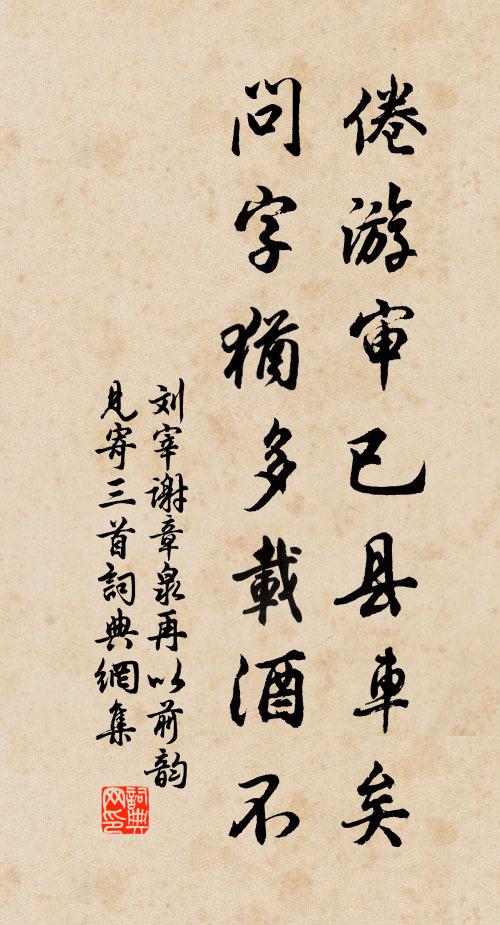 倦游审已县車矣
問字猶多載酒不
刘宰谢章泉再以前韵
見寄三首詞典網集
詞典
网印